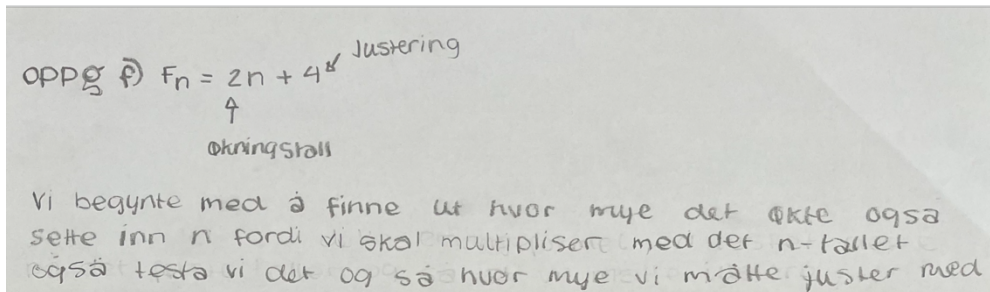 Justering
oppg f) Fn = 2n + 4
økningstall
Vi begynte med å finne ut hvor mye det økte også
sette inn n fordi vi skal multipliser med det n-tallet
også testa vi det og så hvor mye vi måtte juster med